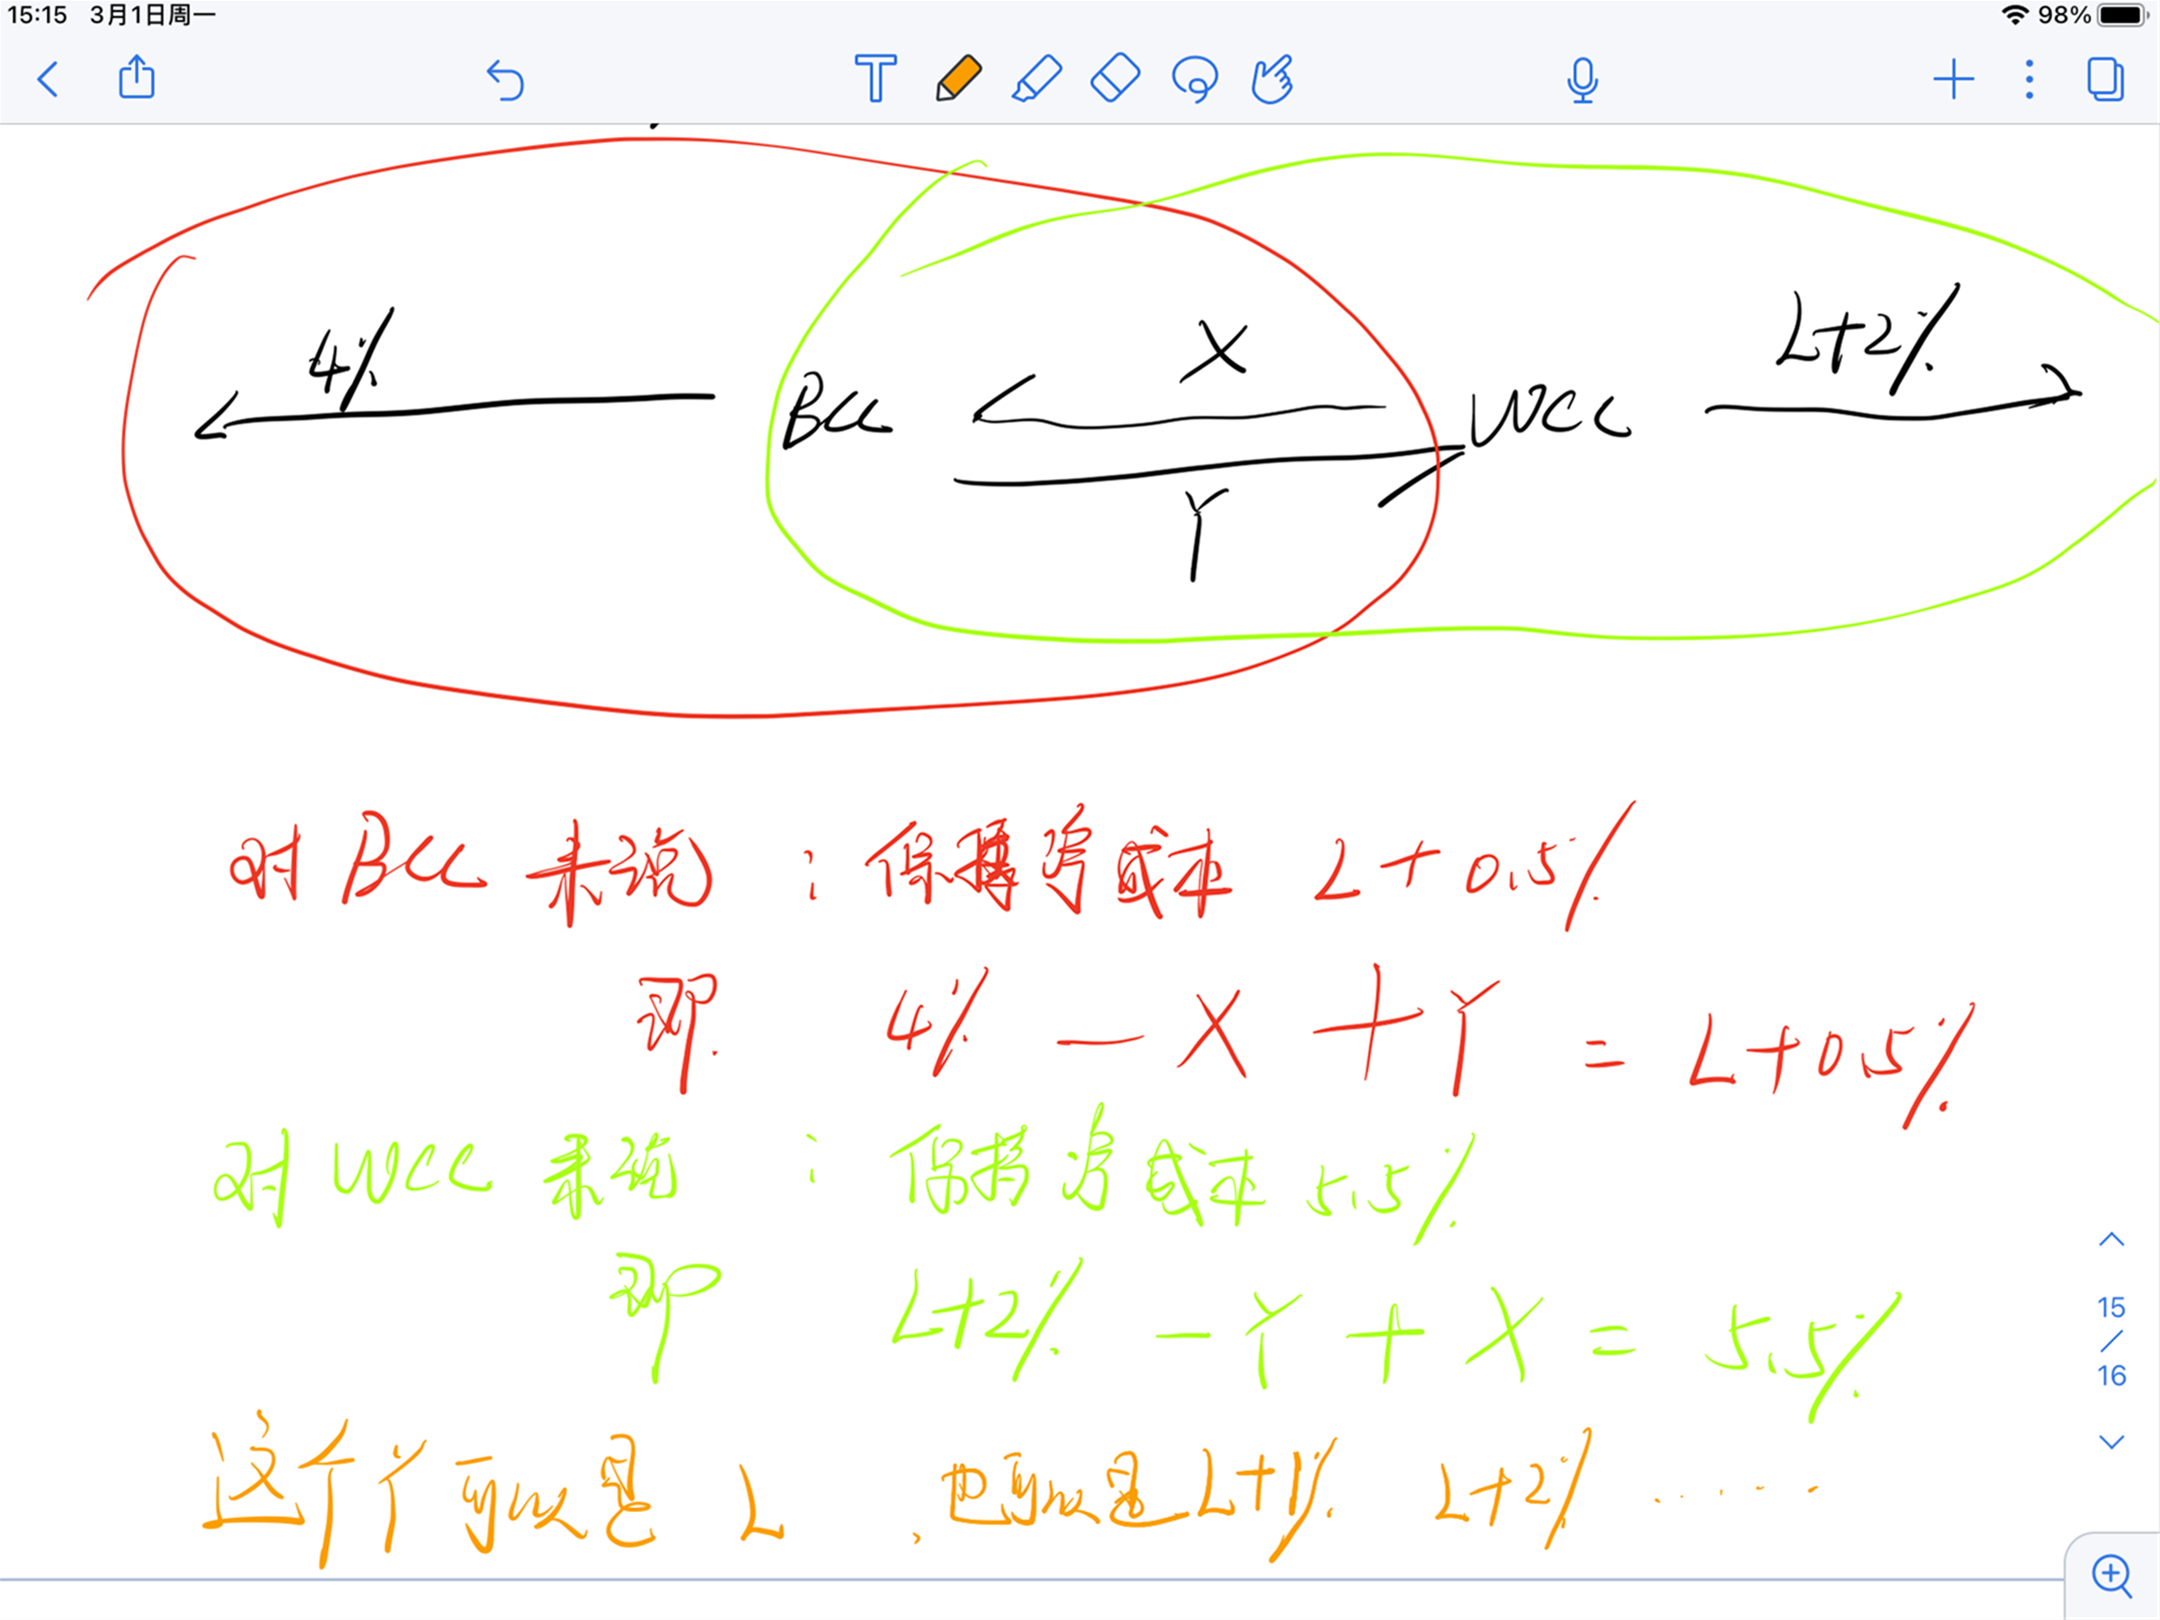 15:15 3月1日周一 98%
4% X L+2%
BCC WCC
Y
对 BCC 来说 : 保持总成本 L+0.5%
即 4% - X + Y = L+0.5%
对 WCC 来说 : 保持总成本 5.5%
即 L+2% - Y + X = 5.5%
这个Y可以是 L , 也可以是L+1% L+2% ......
15
/
16